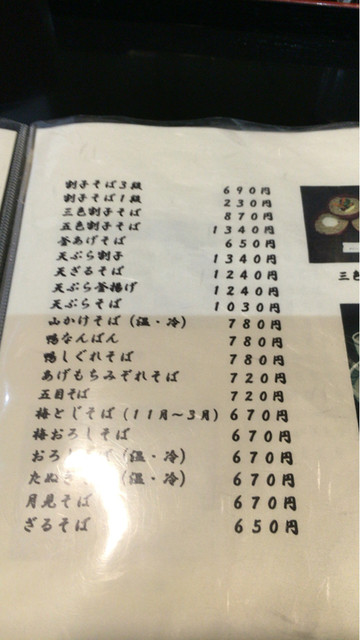 割子そば3段 690円
割子そば1段 230円
三色割子そば 870円
五色割子そば 1340円
釜あげそば 650円
天ぷら割子 1340円
天ざるそば 1240円
天ぷら釜揚げ 1240円
天ぷらそば 1030円
山かけそば(温・冷) 780円
鴨なんばん 780円
鴨しぐれそば 780円
あげもちみぞれそば 720円
五目そば 720円
梅とじそば(11月〜3月) 670円
梅おろしそば 670円
(温・冷) 670円
(温・冷) 670円
月見そば 670円
ざるそば 650円
三色